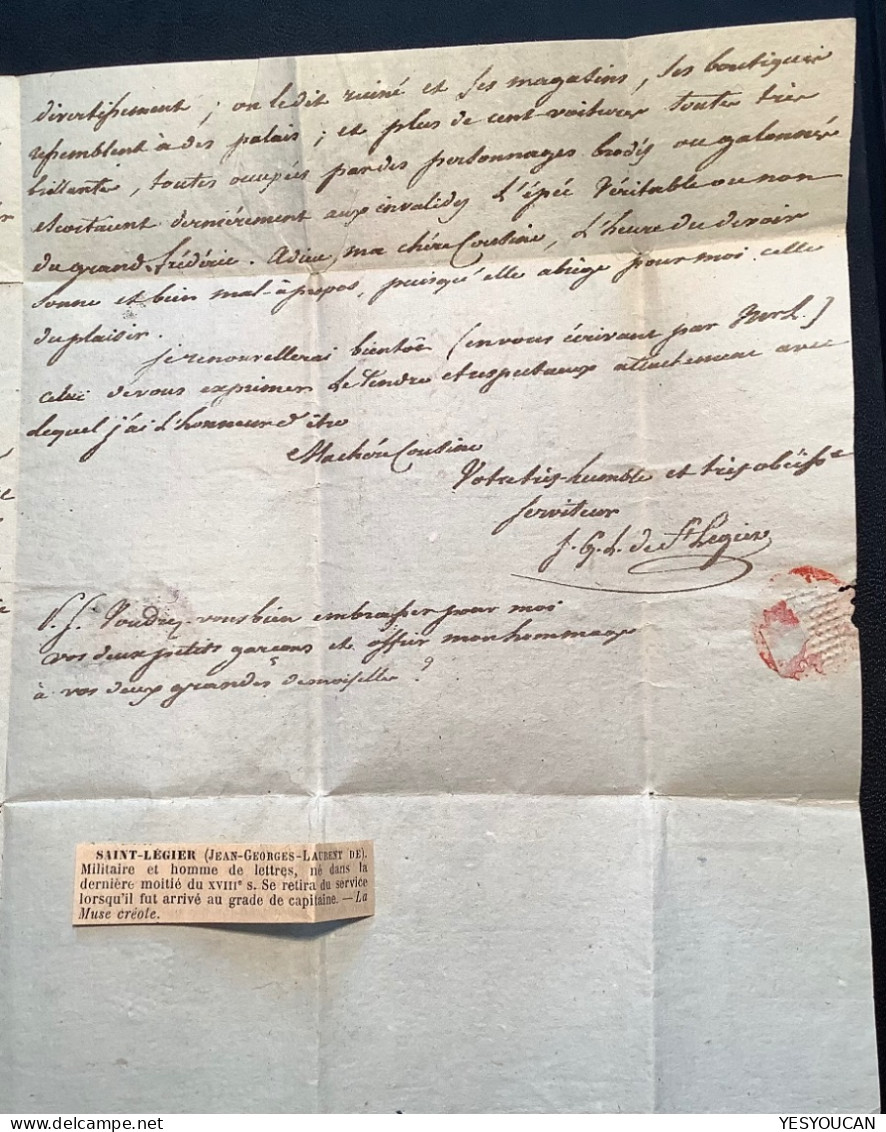 divertissement ; on le dit ruiné et ses magasins, ses boutiques
ressemblent à des palais ; et plus de cent voitures toutes très
brillantes, toutes occupées par des personnages brodés ou galonnés
escortaient dernièrement aux invalides L'épée Véritable ou non
du grand frédéric. Adieu, ma chère Cousine, L'heure du devoir
sonne et bien mal-à-propos, puisqu'elle abrège pour moi celle
du plaisir.
je renouvellerai bientôt (en vous écrivant par
celui de vous exprimer Le tendre et respectueux attachement avec
lequel j'ai L'honneur d'être
Ma chère Cousine
Votre très humble et très obéiss.e
serviteur
J. G. L. de St Legier
P.S. Voudrez-vous bien embrasser pour moi
vos deux petits garçons et offrir mon hommage
à vos deux grandes demoiselles ?
SAINT-LÉGIER (JEAN-GEORGES-LAURENT DE).
Militaire et homme de lettres, né dans la
dernière moitié du XVIIIe s. Se retira du service
lorsqu'il fut arrivé au grade de capitaine. — La
Muse créole.
YESYOUCAN